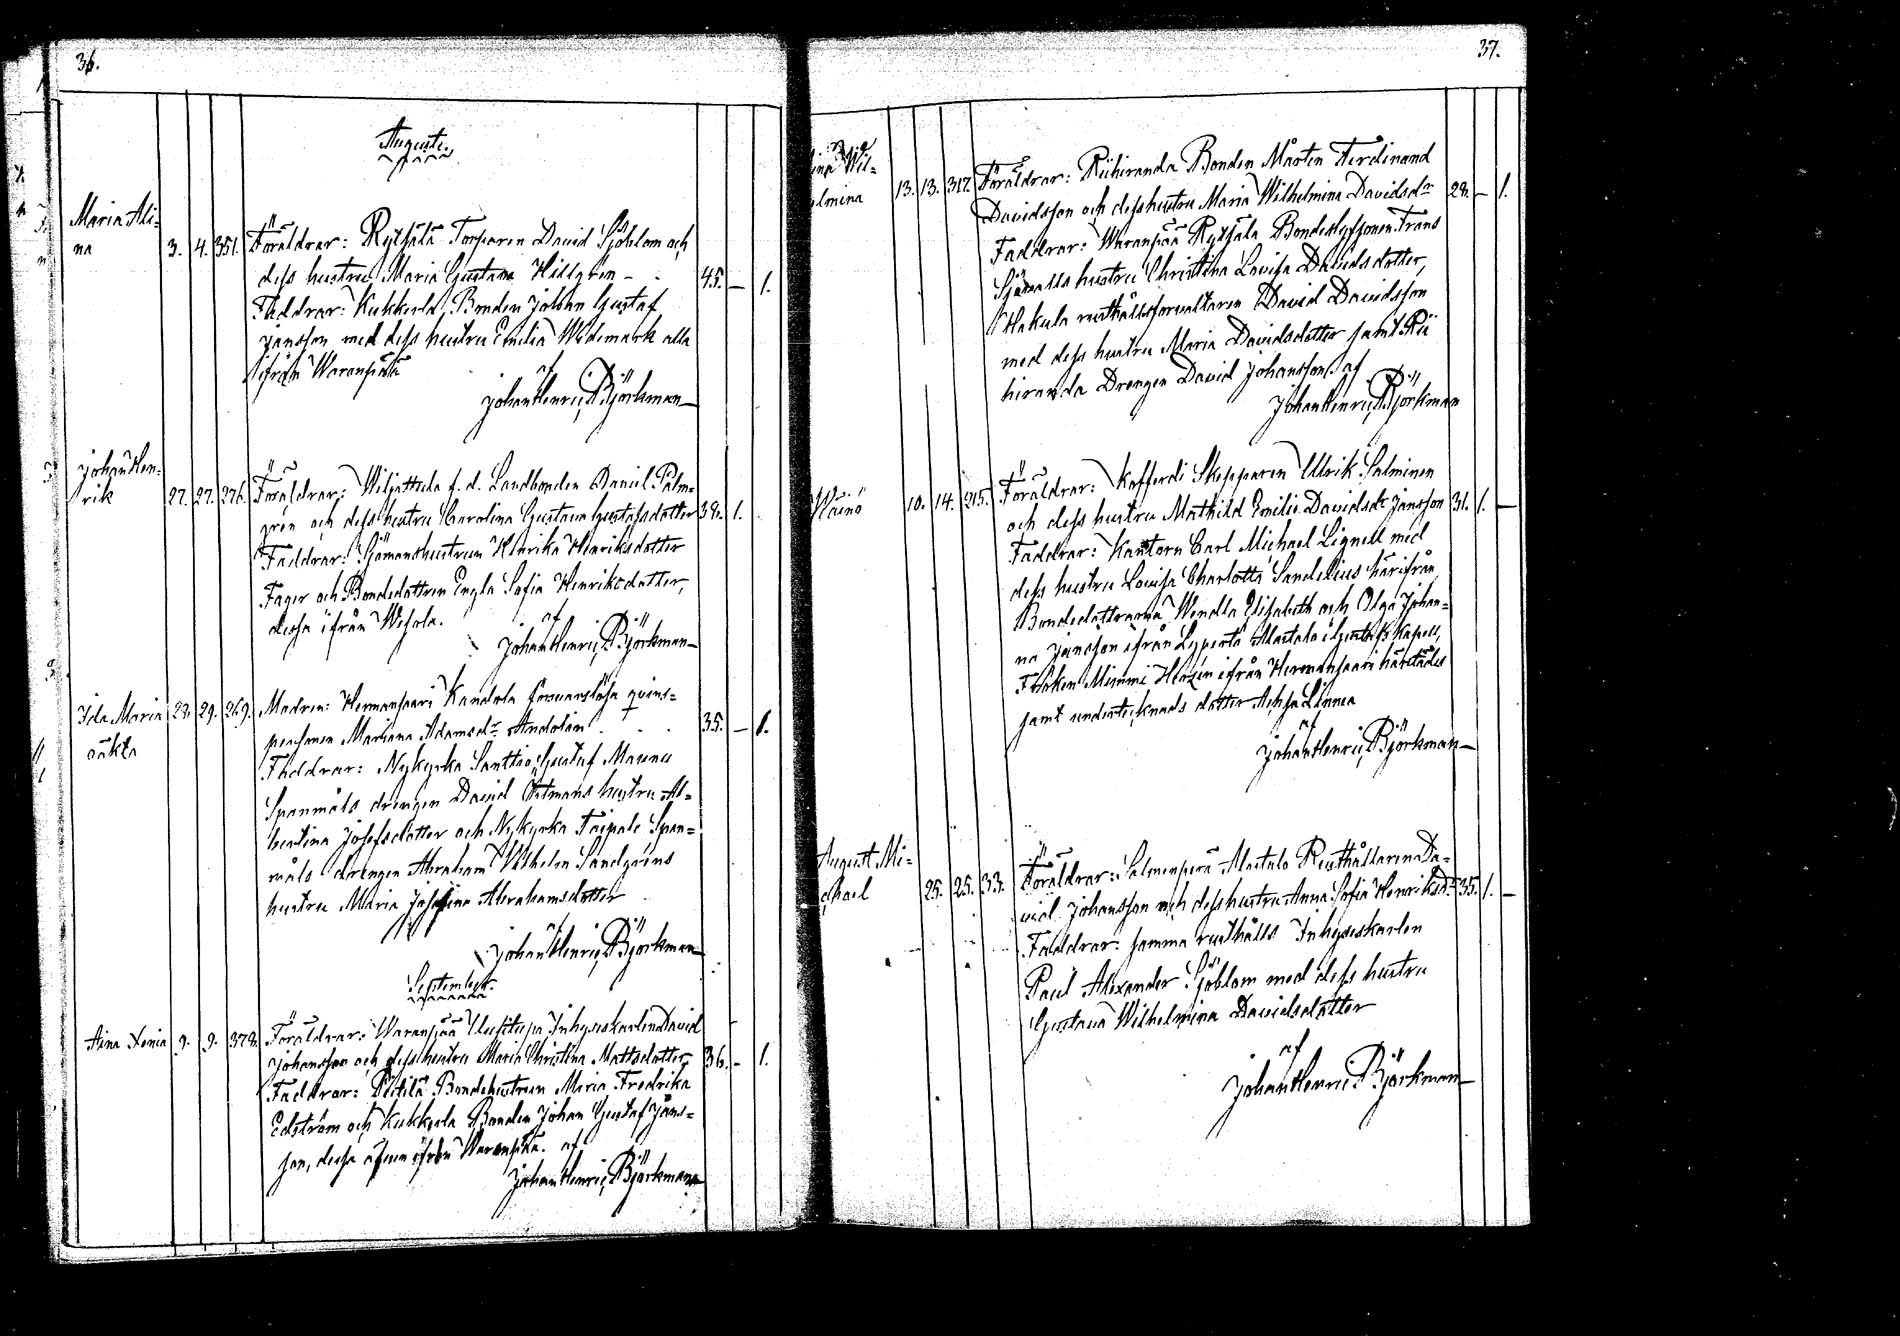 36.
Augusti.
Maria Ali=
na
3. 4. 351. Föräldrar: Rytsälä Torparen David Sjöblom och
dess hustru Maria Gustava Hillgrén
45. — 1.
Faddrar: Kukkola Bonden Johan Gustaf
Jansson med dess hustru Emilia Widemark alla
ifrån Waranpää
af
Johan Henric Björkman
Johan Hen=
rik
27. 27. 276. Föräldrar: f. d. Landbonden Daniel Palm=
grén och dess hustru Carolina Gustava Gustafsdotter 38. 1.
Faddrar: Sjömanshustrun Henrika Henriksdotter
Fager och Bondedottren Engla Sofia Henriksdotter,
dessa ifrån Wehola.
af
Johan Henric Björkman
Ida Maria
oäkta
28. 29. 269. Modren: Hermansaari Kandola försvarslösa qvins=
personen Mariana Adamsdr Andolin
35. — 1.
Faddrar: Nykyrka Santtio Gustaf Maunu
Spanmåls drengen David Östmans hustru Al=
bertina Josefsdotter och Nykyrka Taipale Span=
måls drengen Abraham Wilhelm Sandgréns
hustru Maria Josefina Abrahamsdotter
af
Johan Henric Björkman
September.
Aina Xenia 9. 9. 378. Föräldrar: Waranpää Uusitupa Inhyseskarlen David
Johansson och dess hustru Maria Christina Mattsdotter 36. — 1.
Faddrar: Pietilä Bondehustrun Maria Fredrika
Edström och Kukkola Bonden Johan Gustaf Jans=
son, dessa äfven ifrån Waranpää. af
Johan Henric Björkman
37.
ina Wil=
helmina
13. 13. 317. Föräldrar: Riihiranda Bonden Mårten Ferdinand
Davidsson och dess hustru Maria Wilhelmina Davidsdr 28. — 1.
Faddrar: Waranpää Rytsälä Frans
hustru Christina Lovisa Davidsdotter,
Hakula rusthållsförvaltaren David Davidsson
med dess hustru Maria Davidsdotter samt Rii
hiranda Drengen David Johansson. af
Johan Henric Björkman
Wäinö
10. 14. 215. Föräldrar: Kofferdi Skepparen Ulrik Salminen
och dess hustru Mathild Emilie Davidsdr Jansson 31. 1. —
Faddrar: Kantorn Carl Michael Lignell med
dess hustru Lovisa Charlotta Sandelius härifrån,
Bondedöttrarna Wendla Elisabeth och Olga Johan=
na Jansson ifrån Lypertö Alastalo i Gustafs Kapell,
Fröken Mimmi ifrån Hermansaari härstädes
samt undertecknads dotter Achsa Linnea
af
Johan Henric Björkman
August Mi=
chael
25. 25. 33. Föräldrar: Salmenperä Alastalo Rusthållaren Da=
vid Johansson och dess hustru Anna Sofia Henriksdr 35. 1. —
Faddrar: samma rusthålls Inhyseskarlen
Paul Alexander Sjöblom med dess hustru
Gustava Wilhelmina Davidsdotter
af
Johan Henric Björkman